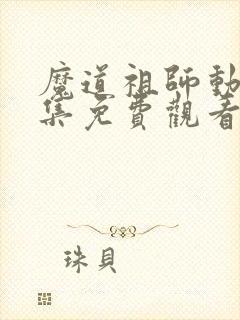 魔道祖師動
集免費觀看
珠貝